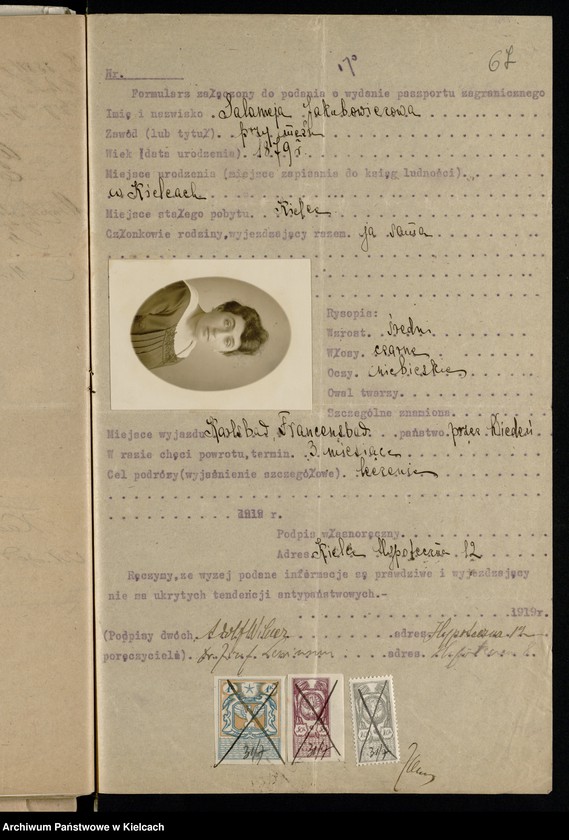 67
Nr.
Formularz załączony do podania o wydanie paszportu zagranicznego
Imię i nazwisko . Salomeja Jakubowiczowa
Zawód (lub tytuł). przy mężu
Wiek (data urodzenia). 1879 r
Miejsce urodzenia (miejsce zapisania do ksiąg ludności).
w Kielcach
Miejsce stałego pobytu. Kielce
Członkowie rodziny,wyjeżdzający razem. ja sama
Rysopis:
Wzrost. średni
Włosy. czarne
Oczy. niebieskie
Owal twarzy.
Szczególne znamiona.
Miejsce wyjazdu Karlsbad, Francensbad. państwo. przez Wiedeń
W razie chęci powrotu,termin. 3 miesiące
Cel podróży(wyjaśnienie szczegółowe). leczenie
1919 r.
Podpis własnoręczny.
Adres. Kielce Hypoteczna 12
Ręczymy,ze wyzej podane informacje są prawdziwe i wyjezdzający
nie ma ukrytych tendencji antypaństwowych.-
1919r.
(Podpisy dwóch, Adolf adres. Hypoteczna 12
poręczycieli). adres.
31/7 31/7 31/7
Archiwum Państwowe w Kielcach